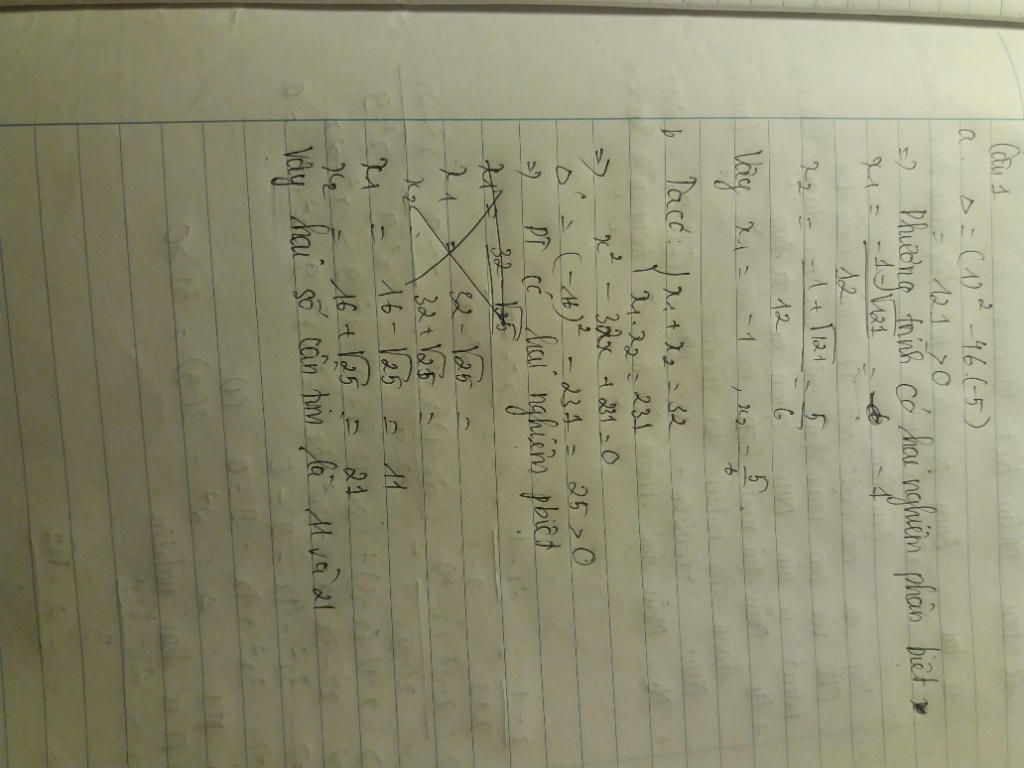 Câu 1
a. Δ = (1)² - 46(-5)
= 121 > 0
=> Phương trình có hai nghiệm phân biệt
x₁ = -1-√121 / 12 = = -1
x₂ = -1+√121 / 12 = 5/6
Vậy x₁ = -1, x₂ = 5/6
b Ta có: { x₁ + x₂ = 32
{ x₁.x₂ = 231
=> x² - 32x + 231 = 0
Δ' = (-16)² - 231 = 25 > 0
=> PT có hai nghiệm pbiệt
x₁ = 32 √25
x₁ = 32 - √25 =
x₂ 32 + √25 =
x₁ = 16 - √25 = 11
x₂ = 16 + √25 = 21
Vậy hai số cần tìm là 11 và 21